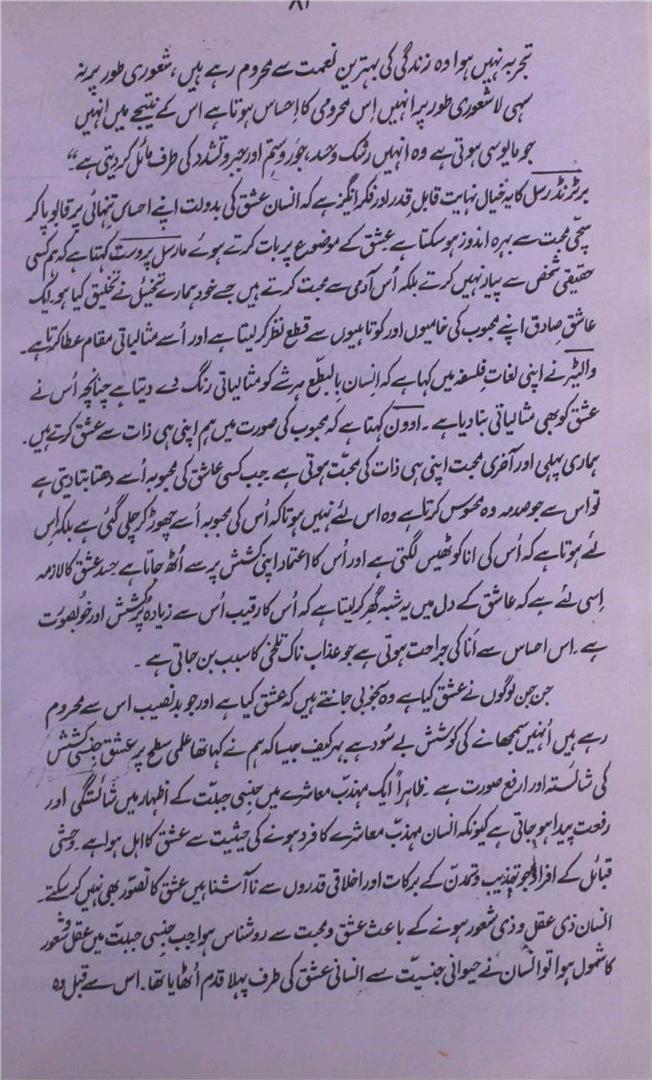 تجربہ نہیں ہوا وہ زندگی کی بہترین نعمت سے محروم رہے ہیں، شعوری طور پر نہ
سہی لاشعوری طور پر انہیں اِس محرومی کا اِحساس ہوتا ہے اس کے نتیجے میں انہیں
جو مایوسی ہوتی ہے وہ انہیں رشک و حسد، جور و ستم اور جبر و تشدد کی طرف مائل کر دیتی ہے"
برٹرنڈ رسل کا یہ خیال نہایت قابلِ قدر اور فکر انگیز ہے کہ انسان عشق کی بدولت اپنے احساسِ تنہائی پر قابو پا کر
سچّی محبت سے بہرہ اندوز ہو سکتا ہے عشق کے موضوع پر بات کرتے ہوئے مارسل پروست کہتا ہے کہ ہم کسی
حقیقی شخص سے پیار نہیں کرتے بلکہ اُس آدمی سے محبت کرتے ہیں جسے خود ہمارے تخیل نے تخلیق کیا ہو۔ ایک
عاشقِ صادق اپنے محبوب کی خامیوں اور کوتاہیوں سے قطع نظر کر لیتا ہے اور اُسے مثالیاتی مقام عطا کرتا ہے۔
والٹیر نے اپنی لغاتِ فلسفہ میں کہا ہے کہ انسان بالطبع ہر شے کو مثالیاتی رنگ دے دیتا ہے چنانچہ اُس نے
عشق کو بھی مثالیاتی بنا دیا ہے۔ اوون کہتا ہے کہ محبوب کی صورت میں ہم اپنی ہی ذات سے عشق کرتے ہیں۔
ہماری پہلی اور آخری محبت اپنی ہی ذات کی محبّت ہوتی ہے جب کسی عاشق کی محبوبہ اُسے دھتا بتا دیتی ہے
تو اس سے جو صدمہ وہ محسوس کرتا ہے وہ اس لئے نہیں ہوتا کہ اُس کی محبوبہ اُسے چھوڑ کر چلی گئی ہے بلکہ اِس
لئے ہوتا ہے کہ اُس کی انا کو ٹھیس لگتی ہے اور اُس کا اعتماد اپنی کشش پر سے اُٹھ جاتا ہے حسد عشق کا لازمہ
اِسی لئے ہے کہ عاشق کے دل میں یہ شبہ گھر کر لیتا ہے کہ اُس کا رقیب اُس سے زیادہ پُرکشش اور خوبصورت
ہے۔ اس احساس سے اَنا کی جراحت ہوتی ہے جو عذاب ناک تلخی کا سبب بن جاتی ہے۔
جن جن لوگوں نے عشق کیا ہے وہ بخوبی جانتے ہیں کہ عشق کیا ہے اور جو بدنصیب اس سے محروم
رہے ہیں اُنہیں سمجھانے کی کوشش بے سُود ہے بہرکیف جیسا کہ ہم نے کہا تھا علمی سطح پر عشق جنسی کشش
کی شائستہ اور ارفع صورت ہے۔ ظاہراً ایک مہذّب معاشرے میں جنسی جبلّت کے اظہار میں شائستگی اور
رفعت پیدا ہو جاتی ہے کیونکہ انسان مہذّب معاشرے کا فرد ہونے کی حیثیت سے عشق کا اہل ہوا ہے۔ وحشی
قبائل کے افراد جو تہذیب و تمدّن کے برکات اور اخلاقی قدروں سے ناآشنا ہیں عشق کا تصوّر بھی نہیں کر سکتے۔
انسان ذی عقل و ذی شعور ہونے کے باعث عشق و محبت سے روشناس ہوا جب جنسی جبلّت میں عقل و شعور
کا شمول ہوا تو انسان نے حیوانی جنسیّت سے انسانی عشق کی طرف پہلا قدم اُٹھایا تھا۔ اس سے قبل وہ